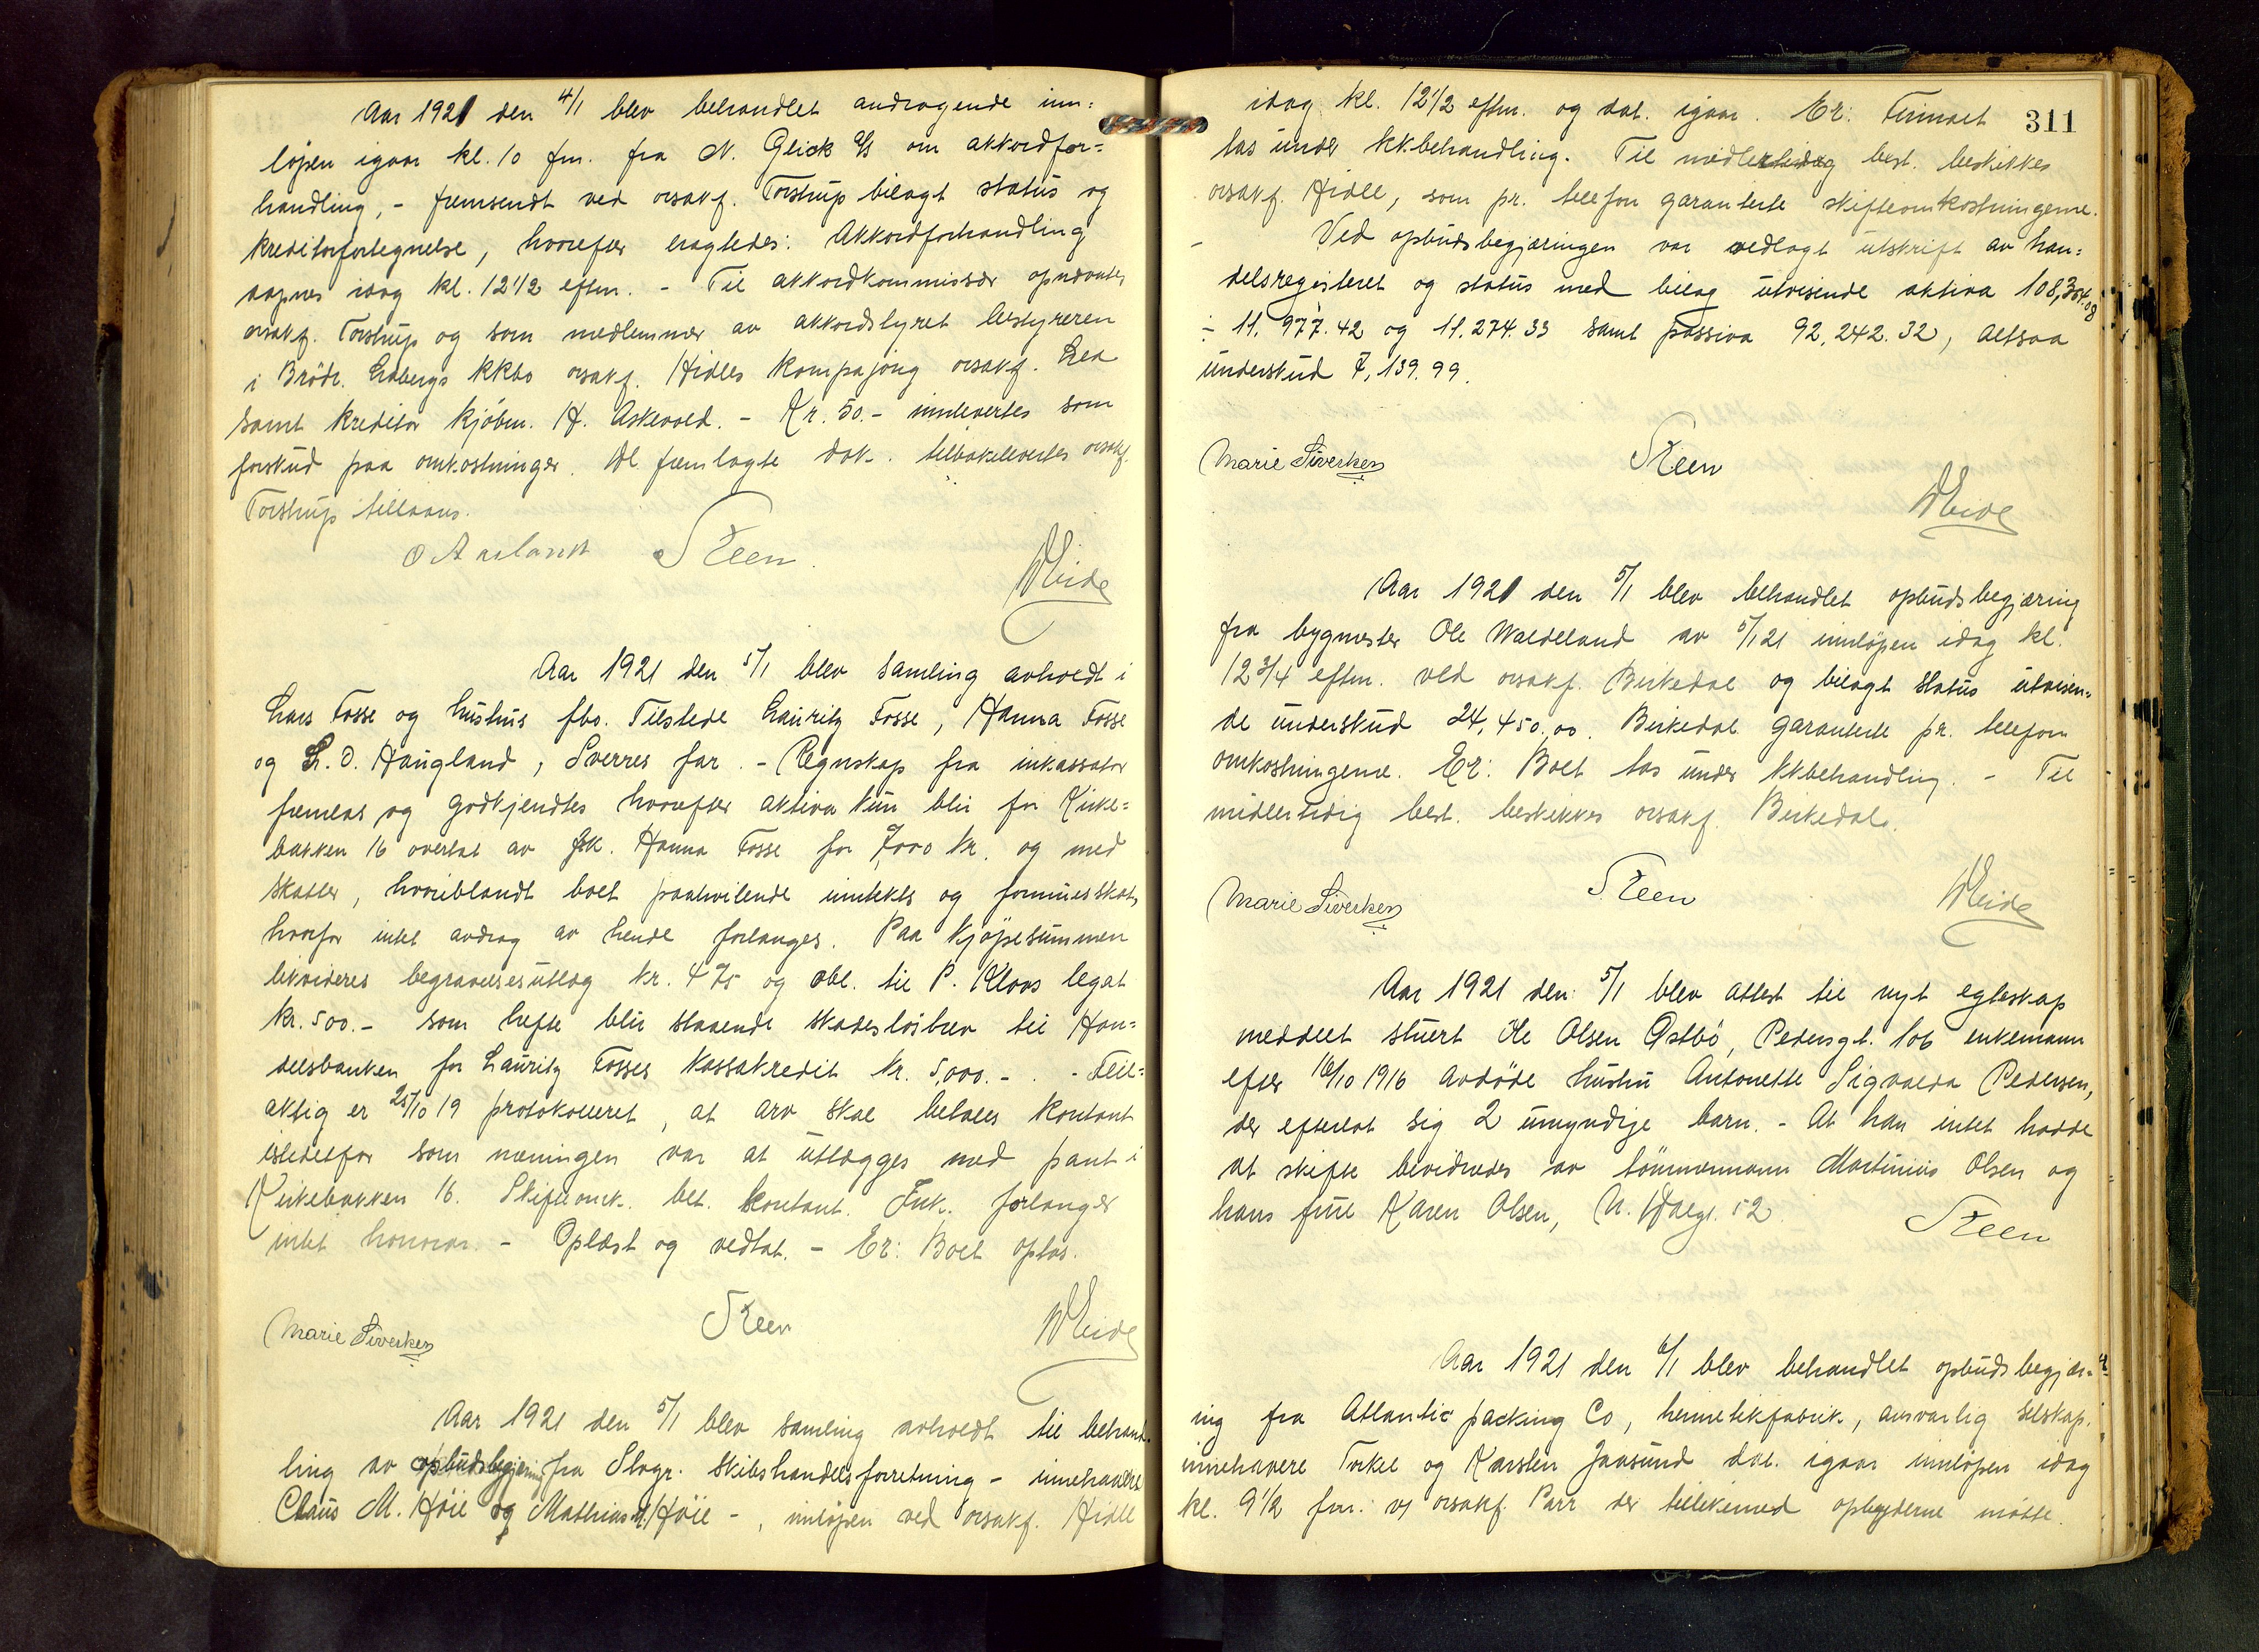 Aar 1921 den 4/1 blev behandlet andragende inn=
løpen igaar kl. 10 fm. fra N. Glick A/S om akkordfor=
handling, - fremsendt ved orsakf. Torstrup bilagt status og
kreditorfortegnelse, hvorefter eragtedes: Akkordforhandling
aapnes idag kl. 12 1/2 eftm. - Til akkordkommissær opnævntes
orsakf. Torstrup og som medlemmer av akkordstyret bestyreren
i Brödr. Edbergs kkbo orsakf. Hidles kompajong orsakf. Lea
samt kreditor kjöbm. H. Askevold. - Kr. 50.- innlevertes som
forskud paa omkostninger. De fremlagte dok. tilbakelevertes orsakf.
Torstrup tillaans.
O Aarland Steen. W Eide
Aar 1921 den 5/1 blev samling avholdt i
Lars Fosse og hustrus fbo. Tilstede Lauritz Fosse, Hanna Fosse
og L. O. Haugland, Sverres far. - Regnskap fra inkassator
fremlas og godkjendtes hvorefter aktiva kun blir fri Kirke=
bakken 16 overtat av frk. Hanna Fosse for 7,000 kr. og med
skatter, hvoriblandt boet paahvilende inntekts og formuesskat,
hvorfor intet avdrag av hende forlanges. Paa kjöpesummen
likvideres begravelsesutlæg kr. 475 og obl. til P. Kloos legat
kr. 500.- som hefte blir staaende skadeslösbrev til Han=
delsbanken for Lauritz Fosses kassakredit kr. 5,000.- . - Feil=
aktig er 25/10 19 protokolleret, at arv skal betales kontant
istedetfor som meningen var at utlægges med pant i
Kirkebakken 16. Skifteomk. bet. kontant. Ink. forlanger
intet honorar. - Oplæst og vedtat. - Er: Boet opløs.
Marie Siverksen Steen W Eide
Aar 1921 den 5/1 blev samling avholdt til behand=
ling av opbudsbegjæring fra Slogr. Skibshandelsforretning - innehavere
Claus M. Höie og Mathias M. Höie - , innløpen ved orsakf. Hidle
311
idag kl. 12 1/2 eftm. og dat. igaar. Er: Firmaet
tas under kkbehandling. Til midlertidig best. beskikkes
orsakf. Hidle, som pr. telefon garanterte skifteomkostningerne.
- Ved opbudsbegjæringen var vedlagt utskrift av han=
delsregisteret og status med bilag utvisende aktiva 108,354.08
÷ 11,977.42 og 11,274.33 samt passiva 92,242.32, altsaa
underskud 7,139.99.
Marie Siverksen Steen W Eide
Aar 1921 den 5/1 blev behandlet opbudsbegjæring
fra bygmester Ole Waldeland av 5/1 21 innløpen idag kl.
12 3/4 eftm. ved orsakf. Birkedal og bilagt status utvisen=
de underskud 24,450.00. Birkedal garanterte pr. telefon
omkostningerne. Er: Boet tas under kkbehandling. - Til
midlertidig best. beskikkes orsakf. Birkedal.
Marie Siverksen Steen W Eide
Aar 1921 den 5/1 blev attest til nyt egteskap
meddelt stuert Ole Olsen Østbö, Pedersgt. 106 enkemann
efter 16/10 1916 avdöde hustru Antonette Sigvalda Pedersen,
der efterlot sig 2 umyndige barn. - At han intet hadde
at skifte bevidnedes av tömmermann Martinius Olsen og
hans frue Karen Olsen, N. Dalgt. 52.
Steen
Aar 1921 den 6/1 blev behandlet opbudsbegjær=
ing fra Atlantic packing Co, hermetikfabrik, ansvarlig selskap.
innehavere Torkel og Karsten Jaasund dat. igaar innløpen idag
kl. 9 1/2 fm. v/ orsakf. Parr der tillikemed opbyderne mötte.